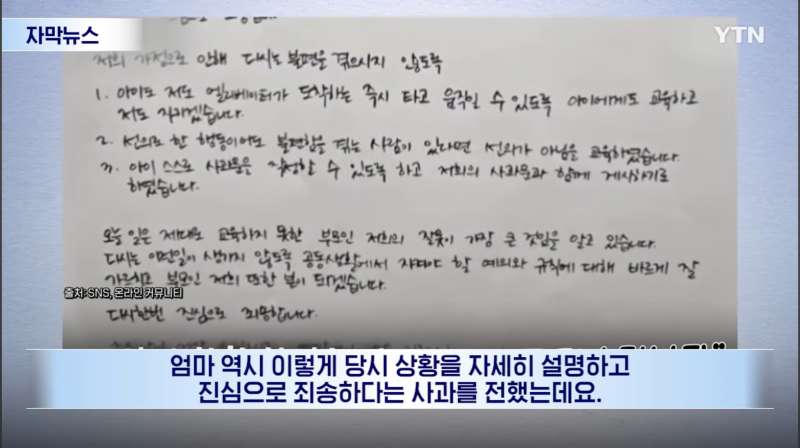 자막뉴스
YTN
저희 가정으로 인해 다시는 불편을 겪으시지 않도록
1. 아이도 저도 엘리베이터가 도착하는 즉시 타고 움직일 수 있도록 아이에게도 교육하고
저도 지키겠습니다.
2. 선의로 한 행동이어도 불편함을 겪는 사람이 있다면 선의가 아님을 교육하였습니다.
3. 아이 스스로 사과문을 작성할 수 있도록 하고 저희의 사과문과 함께 게시하기로
하였습니다.
오늘 일은 제대로 교육하지 못한 부모인 저희의 잘못이 가장 큰 것임을 알고 있습니다.
다시는 이런일이 생기지 않도록 공동생활에서 지켜야 할 예의와 규칙에 대해 바르게 잘
가르치고 부모인 저희 또한 본이 되겠습니다.
출처: SNS, 온라인 커뮤니티
다시한번 진심으로 죄송합니다.
엄마 역시 이렇게 당시 상황을 자세히 설명하고
진심으로 죄송하다는 사과를 전했는데요.